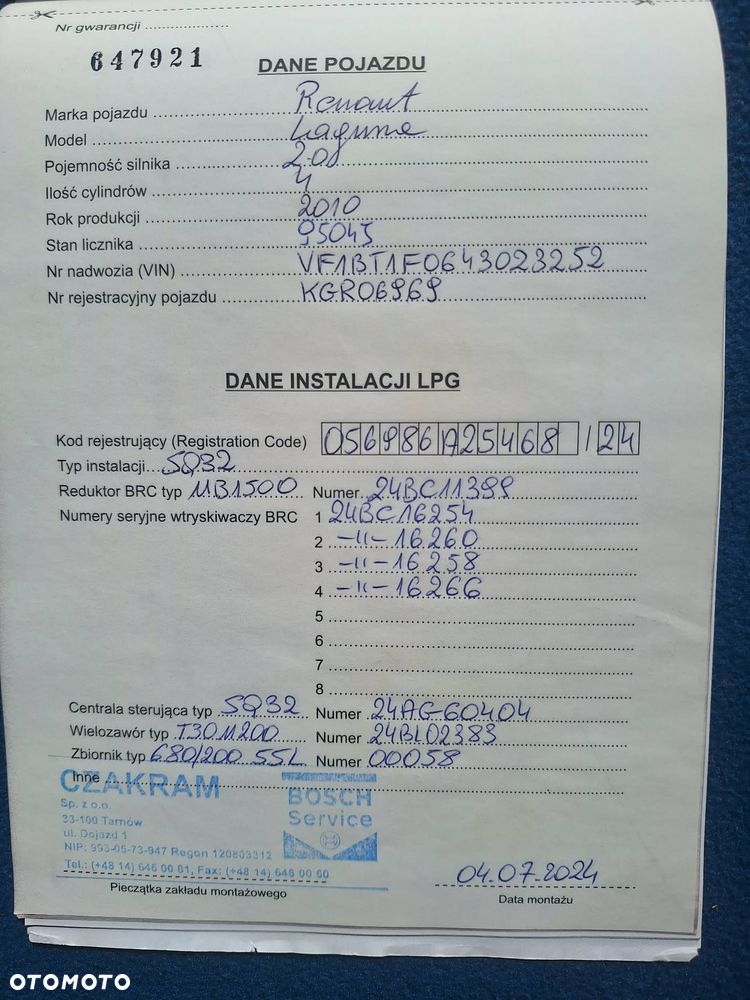 Nr gwarancji ....................
647921
DANE POJAZDU
Marka pojazdu Renault
Model Laguna
Pojemność silnika 2.0
Ilość cylindrów 4
Rok produkcji 2010
Stan licznika 95045
Nr nadwozia (VIN) VF1BT1F0643023252
Nr rejestracyjny pojazdu KGR06969
DANE INSTALACJI LPG
Kod rejestrujący (Registration Code) 056986 A25468 / 24
Typ instalacji SQ32
Reduktor BRC typ MB1500 Numer 24BC11399
Numery seryjne wtryskiwaczy BRC 1 24BC16254
2 -11- 16260
3 -11- 16258
4 -11- 16266
5
6
7
8
Centrala sterująca typ SQ32 Numer 24AG60404
Wielozawór typ T30M200 Numer 24BL02383
Zbiornik typ 680/200 55L Numer 00058
Inne
CZAKRAM
Sp. z o.o.
33-100 Tarnów
ul. Dojazd 1
NIP: 993-05-73-947 Regon 120803312
Tel.: (+48 14) 646 00 81, Fax: (+48 14) 646 00 00
BOSCH
Service
Pieczątka zakładu montażowego
04.07.2024
Data montażu
OTOMOTO